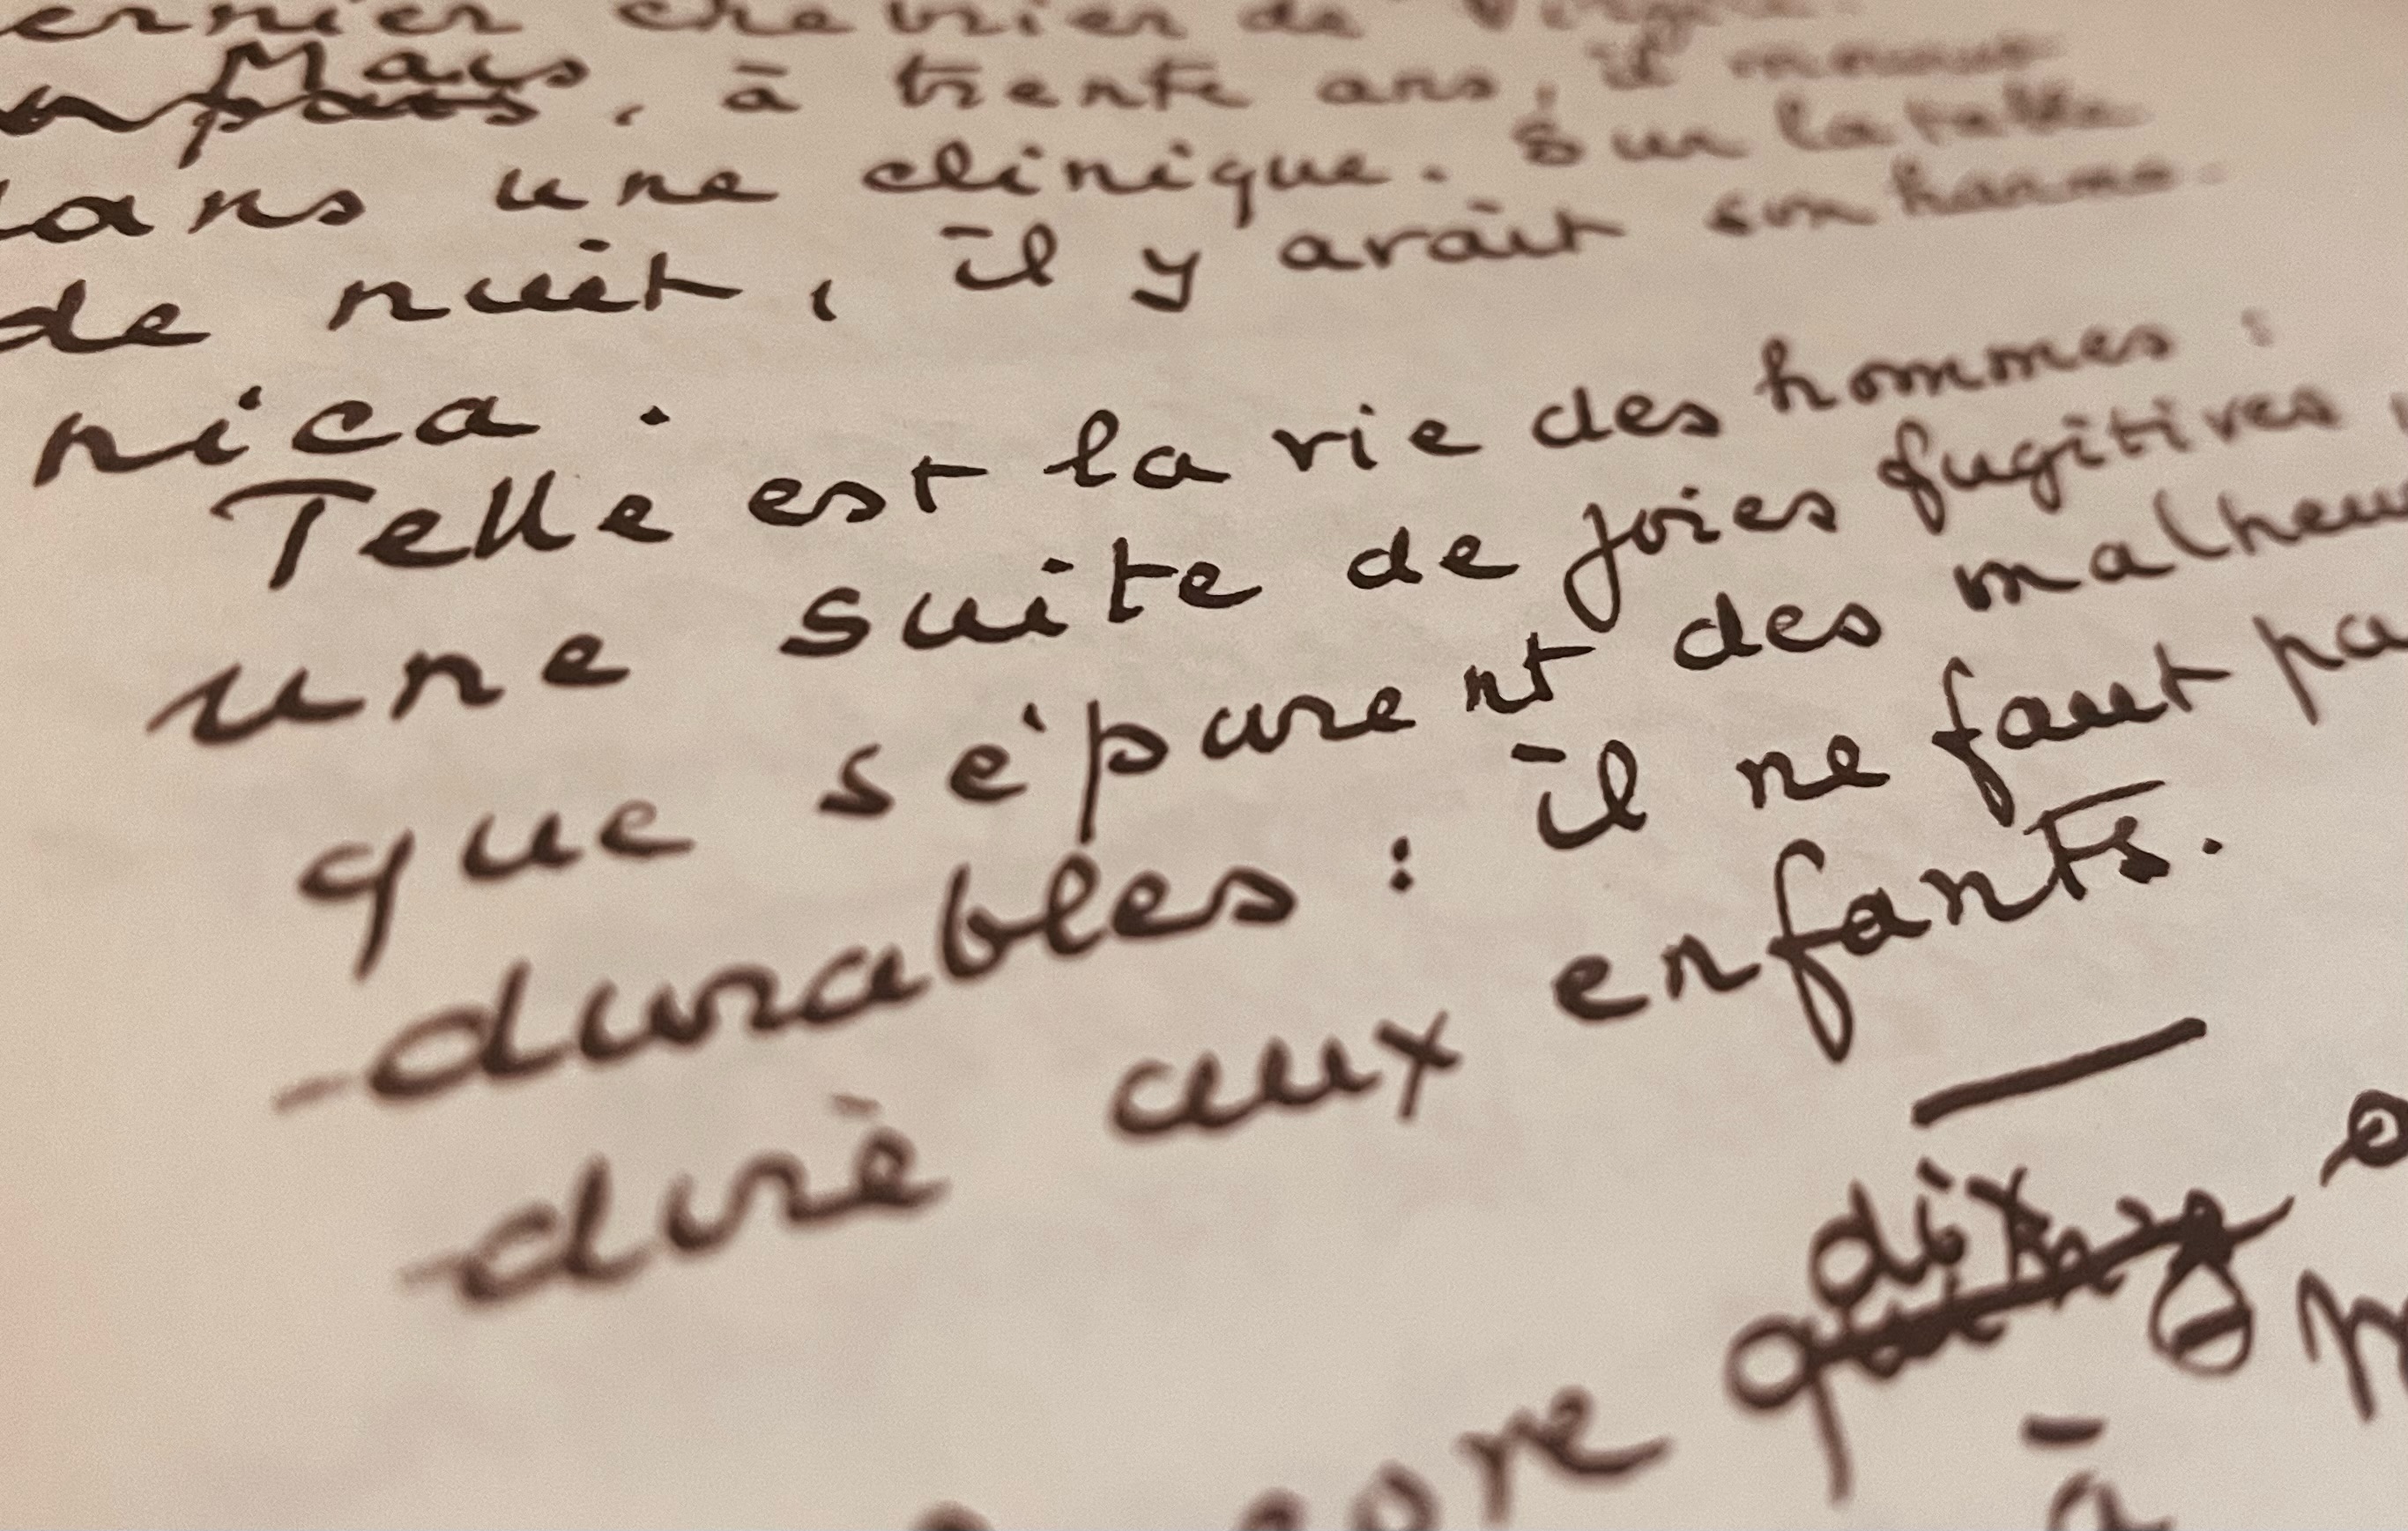 ernier chevrier de Virgile
Mais
pais, à trente ans, il mourut
dans une clinique. Sur la table
de nuit, il y avait son harmo-
nica.
Telle est la vie des hommes :
une suite de joies fugitives,
que séparent des malheu
durables : il ne faut pa
dire aux enfants.
dix
ore
à